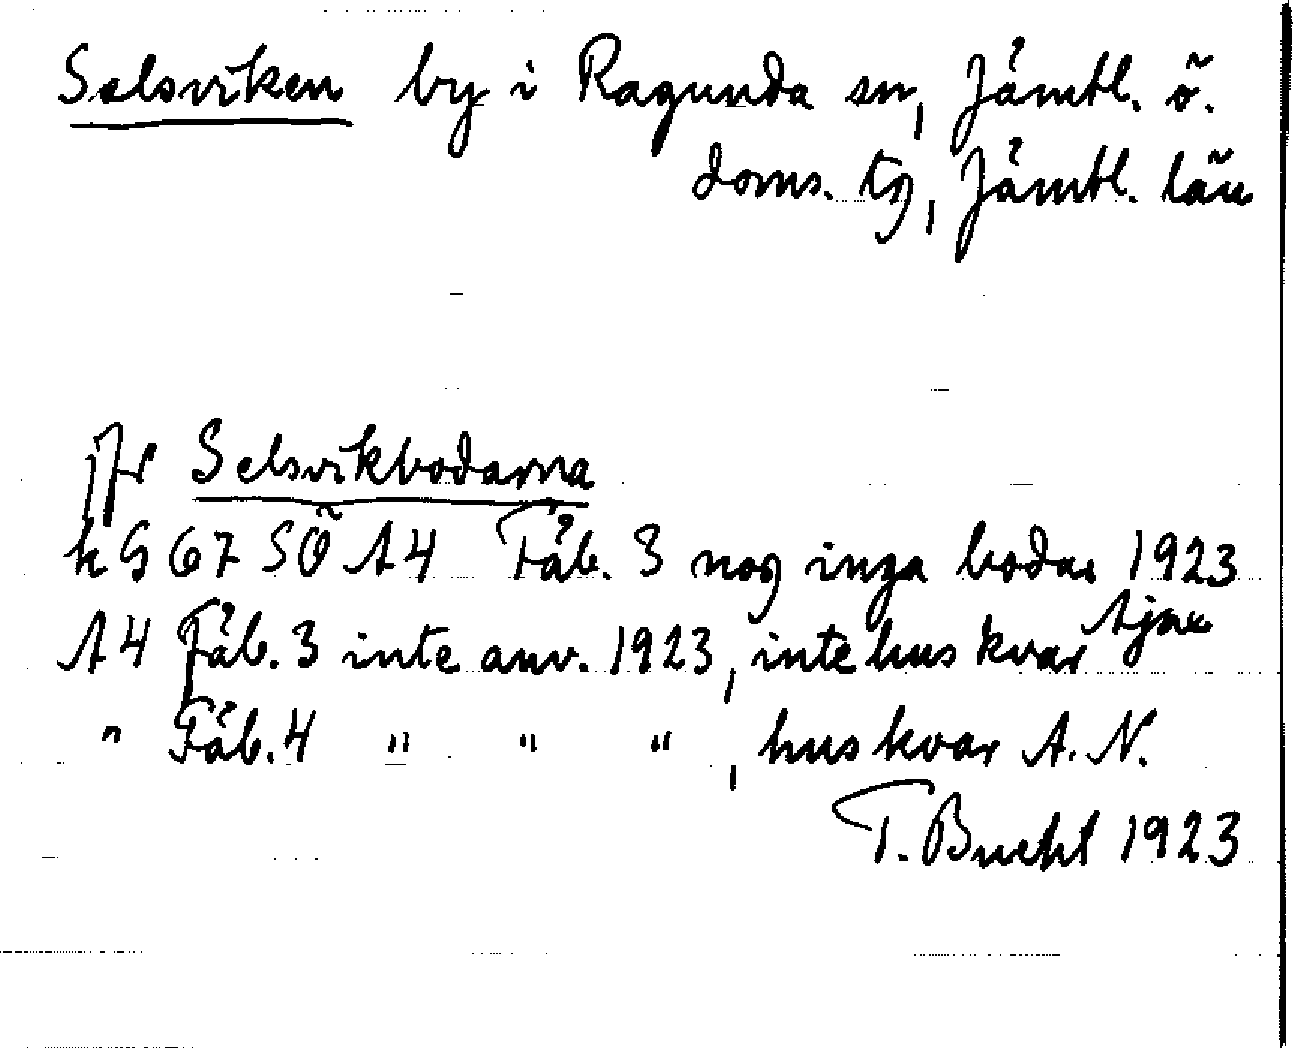 Selsviken by i Ragunda sn, Jämtl. ö.
doms. tg, Jämtl. län
jfr Selsvikbodarna
k G 67 SÖ A4 Fäb. 3 nog inga bodar 1923
A4 Fäb. 3 inte anv. 1923, inte hus kvar
" Fäb. 4 " " " , hus kvar A. N.
T. Bucht 1923